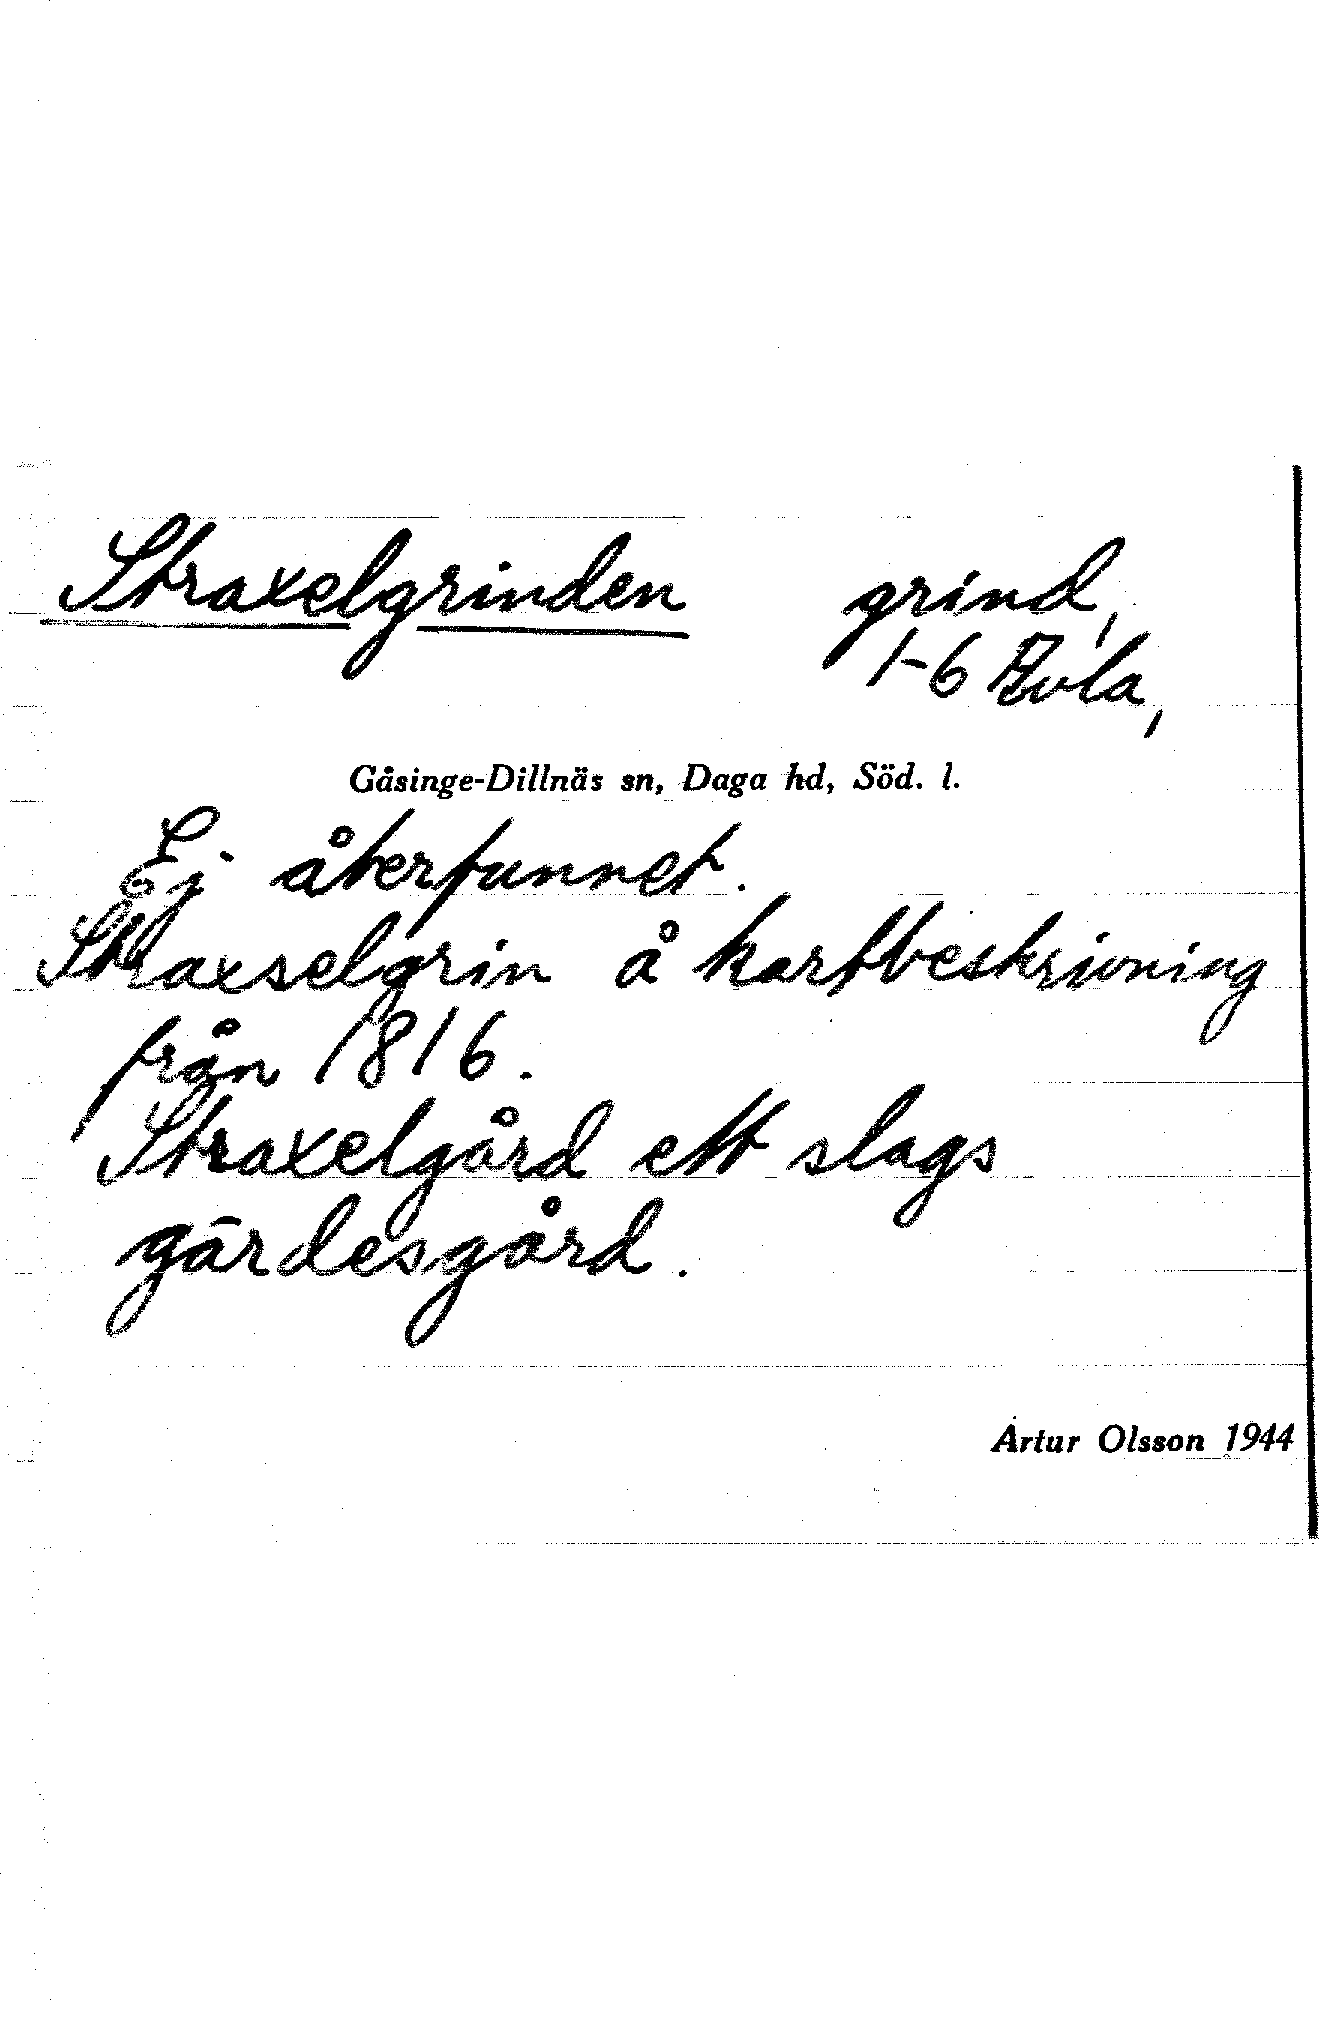 Straxelgrinden grind,
1-6
Gåsinge-Dillnäs sn, Daga hd, Söd. l.
Ej återfunnet.
Straxselgrin å kartbeskrivning
från 1816.
Straxelgård ett slags
gärdesgård.
Artur Olsson 1944